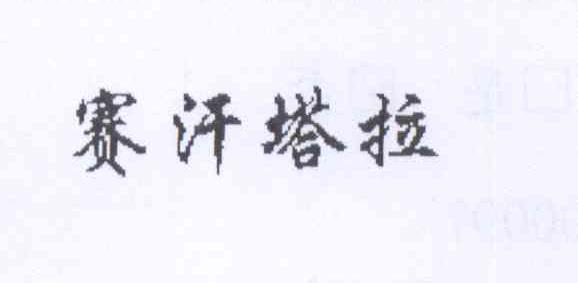 赛汗塔拉